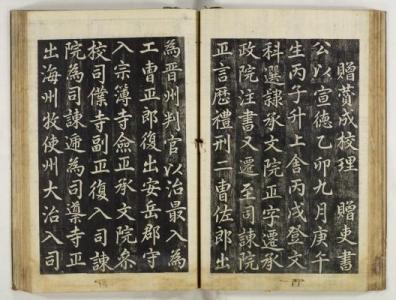 贈賛成校理　贈吏書
公以宣德乙卯九月庚午
生丙子升上舍丙戌登文
科選隷承文院正字遷承
政院注書又遷至司諫院
正言歷禮刑二曹佐郎出
為晋州判官以治最入為
工曹正郎復出安岳郡守
入宗簿寺僉正承文院叅
校司僕寺副正復入司諫
院為司諫遞為司䆃寺正
出海州牧使州大治入司